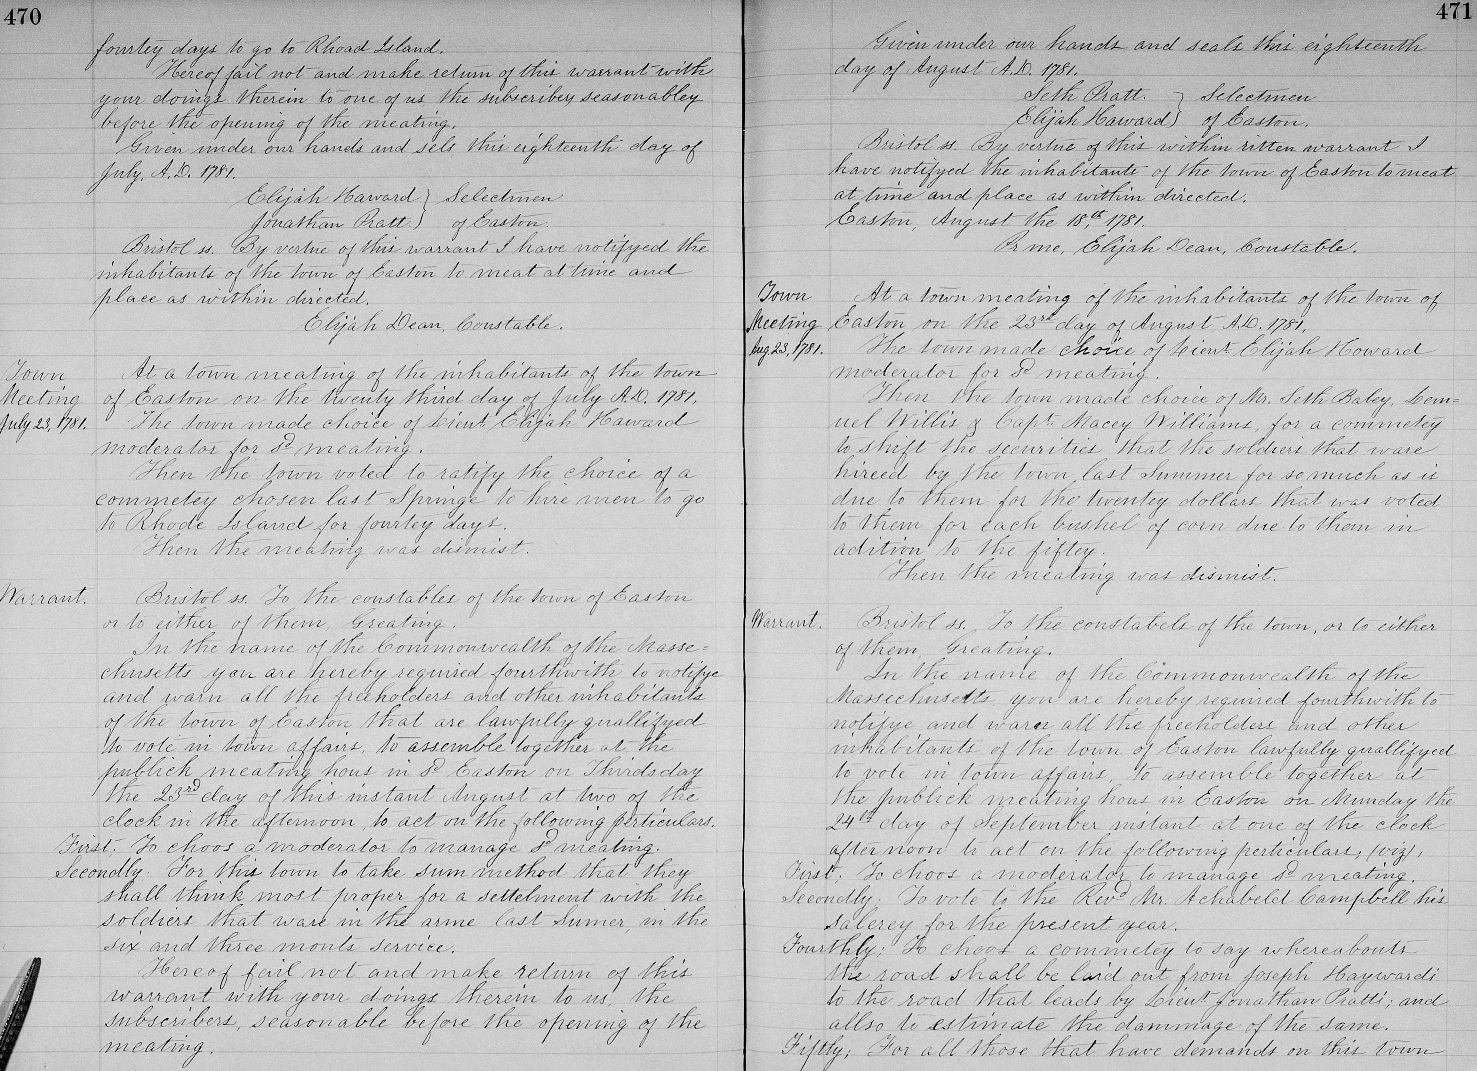 470
fourtey days to go to Rhoad Island.
Hereof fail not and make return of this warrant with
your doings therein to one of us the subscribey seasonabley
before the opening of the meating.
Given under our hands and sels, this eighteenth day of
July, A.D. 1781.
Elijah Haward } Selectmen
Jonathan Pratt. } of Easton.
Bristol ss. By vertue of this warrant I have notifyed the
inhabitants of the town of Easton to meat at time and
place as within directed.
Elijah Dean, Constable.
Town
Meeting
July 23, 1781.
At a town meating of the inhabitants of the town
of Easton on the twenty third day of July A.D. 1781,
The town made choice of Lieut Elijah Haward
moderator for sd meating.
Then the town voted to ratify the choice of a
commetey chosen last Springe to hire men to go
to Rhode Island for fourtey days.
Then the meating was dismist.
Warrant.
Bristol ss. To the constables of the town of Easton
or to either of them, Greating.
In the name of the Commonwealth of the Masse=
chusetts you are hereby required fourthwith to notifye
and warn all the freeholders and other inhabitants
of the town of Easton that are lawfully quallifyed
to vote in town affairs, to assemble together at the
publick meating hous in sd Easton on Thirdsday
the 23rd day of this instant August at two of the
clock in the afternoon, to act on the following perticulars.
First; To choos a moderator to manage sd meating.
Secondly. For this town to take sum method that they
shall think most proper for a settelment with the
soldiers that ware in the arme last Sumer, in the
six and three monts service.
Hereof fail not and make return of this
warrant with your doings therein to us, the
subscribers, seasonable before the opening of the
meating.
471
Given under our hands and seals this eighteenth
day of August A.D. 1781.
Seth Pratt. } Selectmen
Elijah Haward } of Easton.
Bristol ss. By vertue of this within ritten warrant I
have notifyed the inhabitants of the town of Easton to meat
at time and place as within directed.
Easton, August the 18th, 1781.
Pr me, Elijah Dean, Constable.
Town
Meeting
Aug 23, 1781.
At a town meating of the inhabitants of the town of
Easton on the 23rd day of August, A.D. 1781,
The town made choice of Lieut Elijah Howard
moderator for sd meating.
Then the town made choice of Mr. Seth Baley, Lem=
uel Willis & Capt. Macey Williams, for a commetey
to shift the securities that the soldiers that ware
hireed by the town last Summer for so much as is
due to them for the twentey dollars that was voted
to them for each bushel of corn due to them in
adition to the fiftey.
Then the meating was dismist.
Warrant.
Bristol ss. To the constabels of the town, or to either
of them, Greating.
In the name of the Commonwealth of the
Massechusetts you are hereby required fourthwith to
notifye and warn all the freeholders and other
inhabitants of the town of Easton lawfully quallifyed
to vote in town affairs, to assemble together at
the publick meating hous in Easton on Munday the
24th day of September instant at one of the clock
after noon to act on the following perticulars, (viz),
First; To choos a moderator to manage sd meating.
Secondly; To vote to the Revd Mr. Achabeld Campbell his
salerey for the present year.
Fourthly; To choos a commetey to say whereabouts
the road shall be laid out from Joseph Haywards
to the road that leads by Lieut Jonathan Pratts; and
allso to estimate the dammage of the same.
Fiftly; For all those that have demands on this town